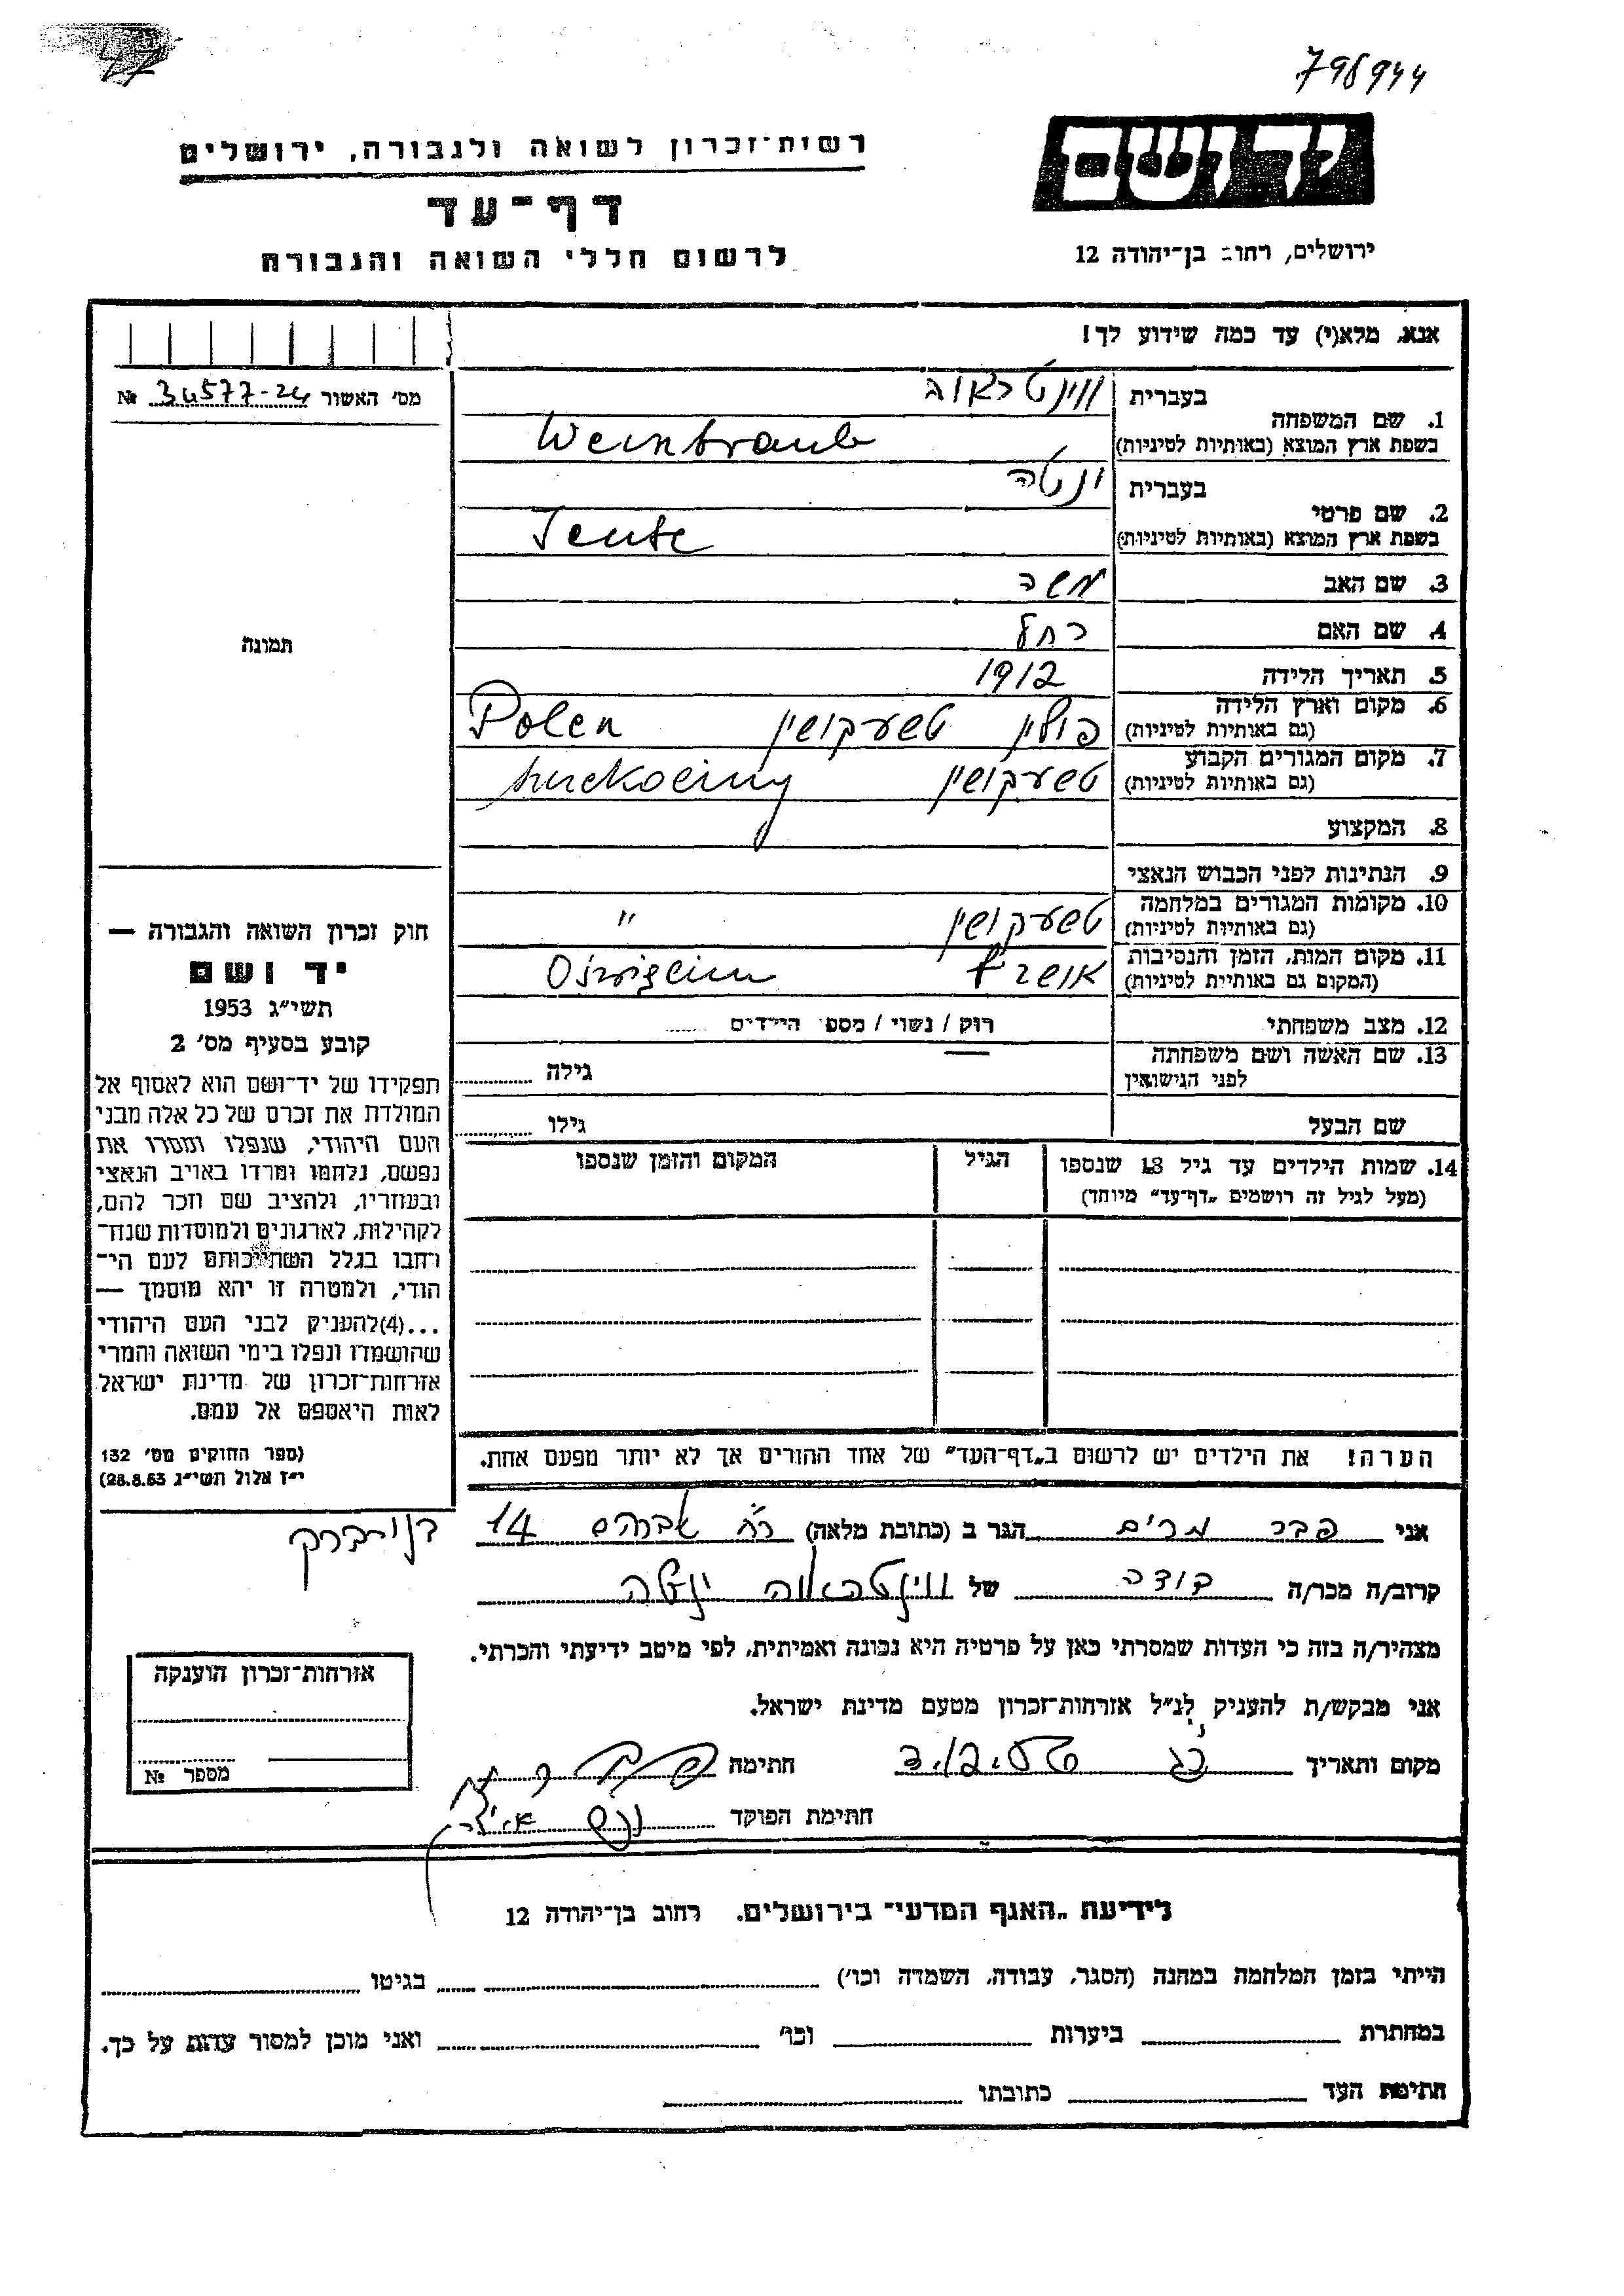 47
798944
רשות־זכרון לשואה ולגבורה, ירושלים
דף־עד
לרשום חללי השואה והגבורה
יד ושם
ירושלים, רחוב בן־יהודה 12
אנא, מלא(י) עד כמה שידוע לך!
מס׳ האשור № 34577-24
1. שם המשפחה
בעברית ווינטראוב
בשפת ארץ המוצא (באותיות לטיניות) Weintraub
2. שם פרטי
בעברית ינטה
בשפת ארץ המוצא (באותיות לטיניות) Jente
3. שם האב משה
4. שם האם רחל
5. תאריך הלידה 1912
6. מקום וארץ הלידה (גם באותיות לטיניות) פולין טשעקושין Polen
7. מקום המגורים הקבוע (גם באותיות לטיניות) טשעקושין
8. המקצוע
9. הנתינות לפני הכבוש הנאצי
10. מקומות המגורים במלחמה (גם באותיות לטיניות) טשעקושין "
11. מקום המות, הזמן והנסיבות (המקום גם באותיות לטיניות)
12. מצב משפחתי רוק / נשוי / מספר הילדים
13. שם האשה ושם משפחתה לפני הנישואין גילה
שם הבעל גילו
14. שמות הילדים עד גיל 18 שנספו
(מעל לגיל זה רושמים „דף־עד״ מיוחד)
הגיל
המקום והזמן שנספו
הערה! את הילדים יש לרשום ב„דף־העד״ של אחד ההורים אך לא יותר מפעם אחת.
תמונה
חוק זכרון השואה והגבורה —
יד ושם
תשי״ג 1953
קובע בסעיף מס׳ 2
תפקידו של יד־ושם הוא לאסוף אל
המולדת את זכרם של כל אלה מבני
העם היהודי, שנפלו ומסרו את
נפשם, נלחמו ומרדו באויב הנאצי
ובעוזריו, ולהציב שם וזכר להם,
לקהילות, לארגונים ולמוסדות שנח־
רחבו בגלל השתייכותם לעם הי־
הודי, ולמטרה זו יהא מוסמך —
...(4)להעניק לבני העם היהודי
שהושמדו ונפלו בימי השואה והמרי
אזרחות־זכרון של מדינת ישראל
לאות היאספם אל עמם.
(ספר החוקים מס׳ 132
י״ז אלול תשי״ג 28.8.53)
אני פבר מרים הגר ב (כתובת מלאה) רח׳ אברהם 14
קרוב/ה מכר/ה דודה של ינטה
מצהיר/ה בזה כי העדות שמסרתי כאן על פרטיה היא נכונה ואמיתית, לפי מיטב ידיעתי והכרתי.
אני מבקש/ת להעניק לנ״ל אזרחות־זכרון מטעם מדינת ישראל.
מקום ותאריך חתימה
חתימת הפוקד
אזרחות־זכרון הוענקה
מספר №
לידיעת „האגף המדעי״ בירושלים. רחוב בן־יהודה 12
הייתי בזמן המלחמה במחנה (הסגר, עבודה, השמדה וכו׳) בגיטו
במחתרת ביערות וכו׳ ואני מוכן למסור עדות על כך.
חתימת העד כתובתו